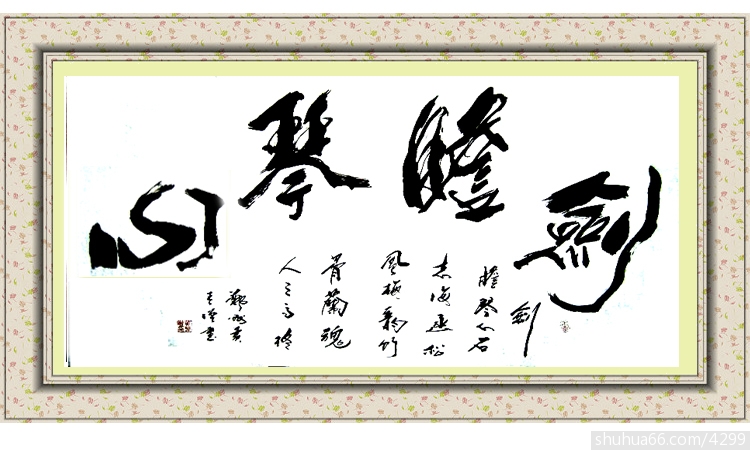 劍膽琴心
劍
膽琴心石
志海松
風梅韵竹
骨蘭魂
人之高格
書
shuhua66.com/4299